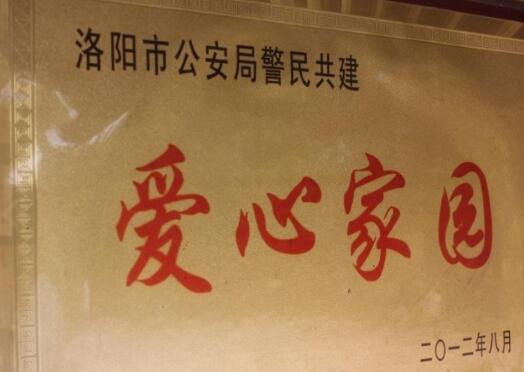 洛阳市公安局警民共建
爱心家园
二〇一二年八月